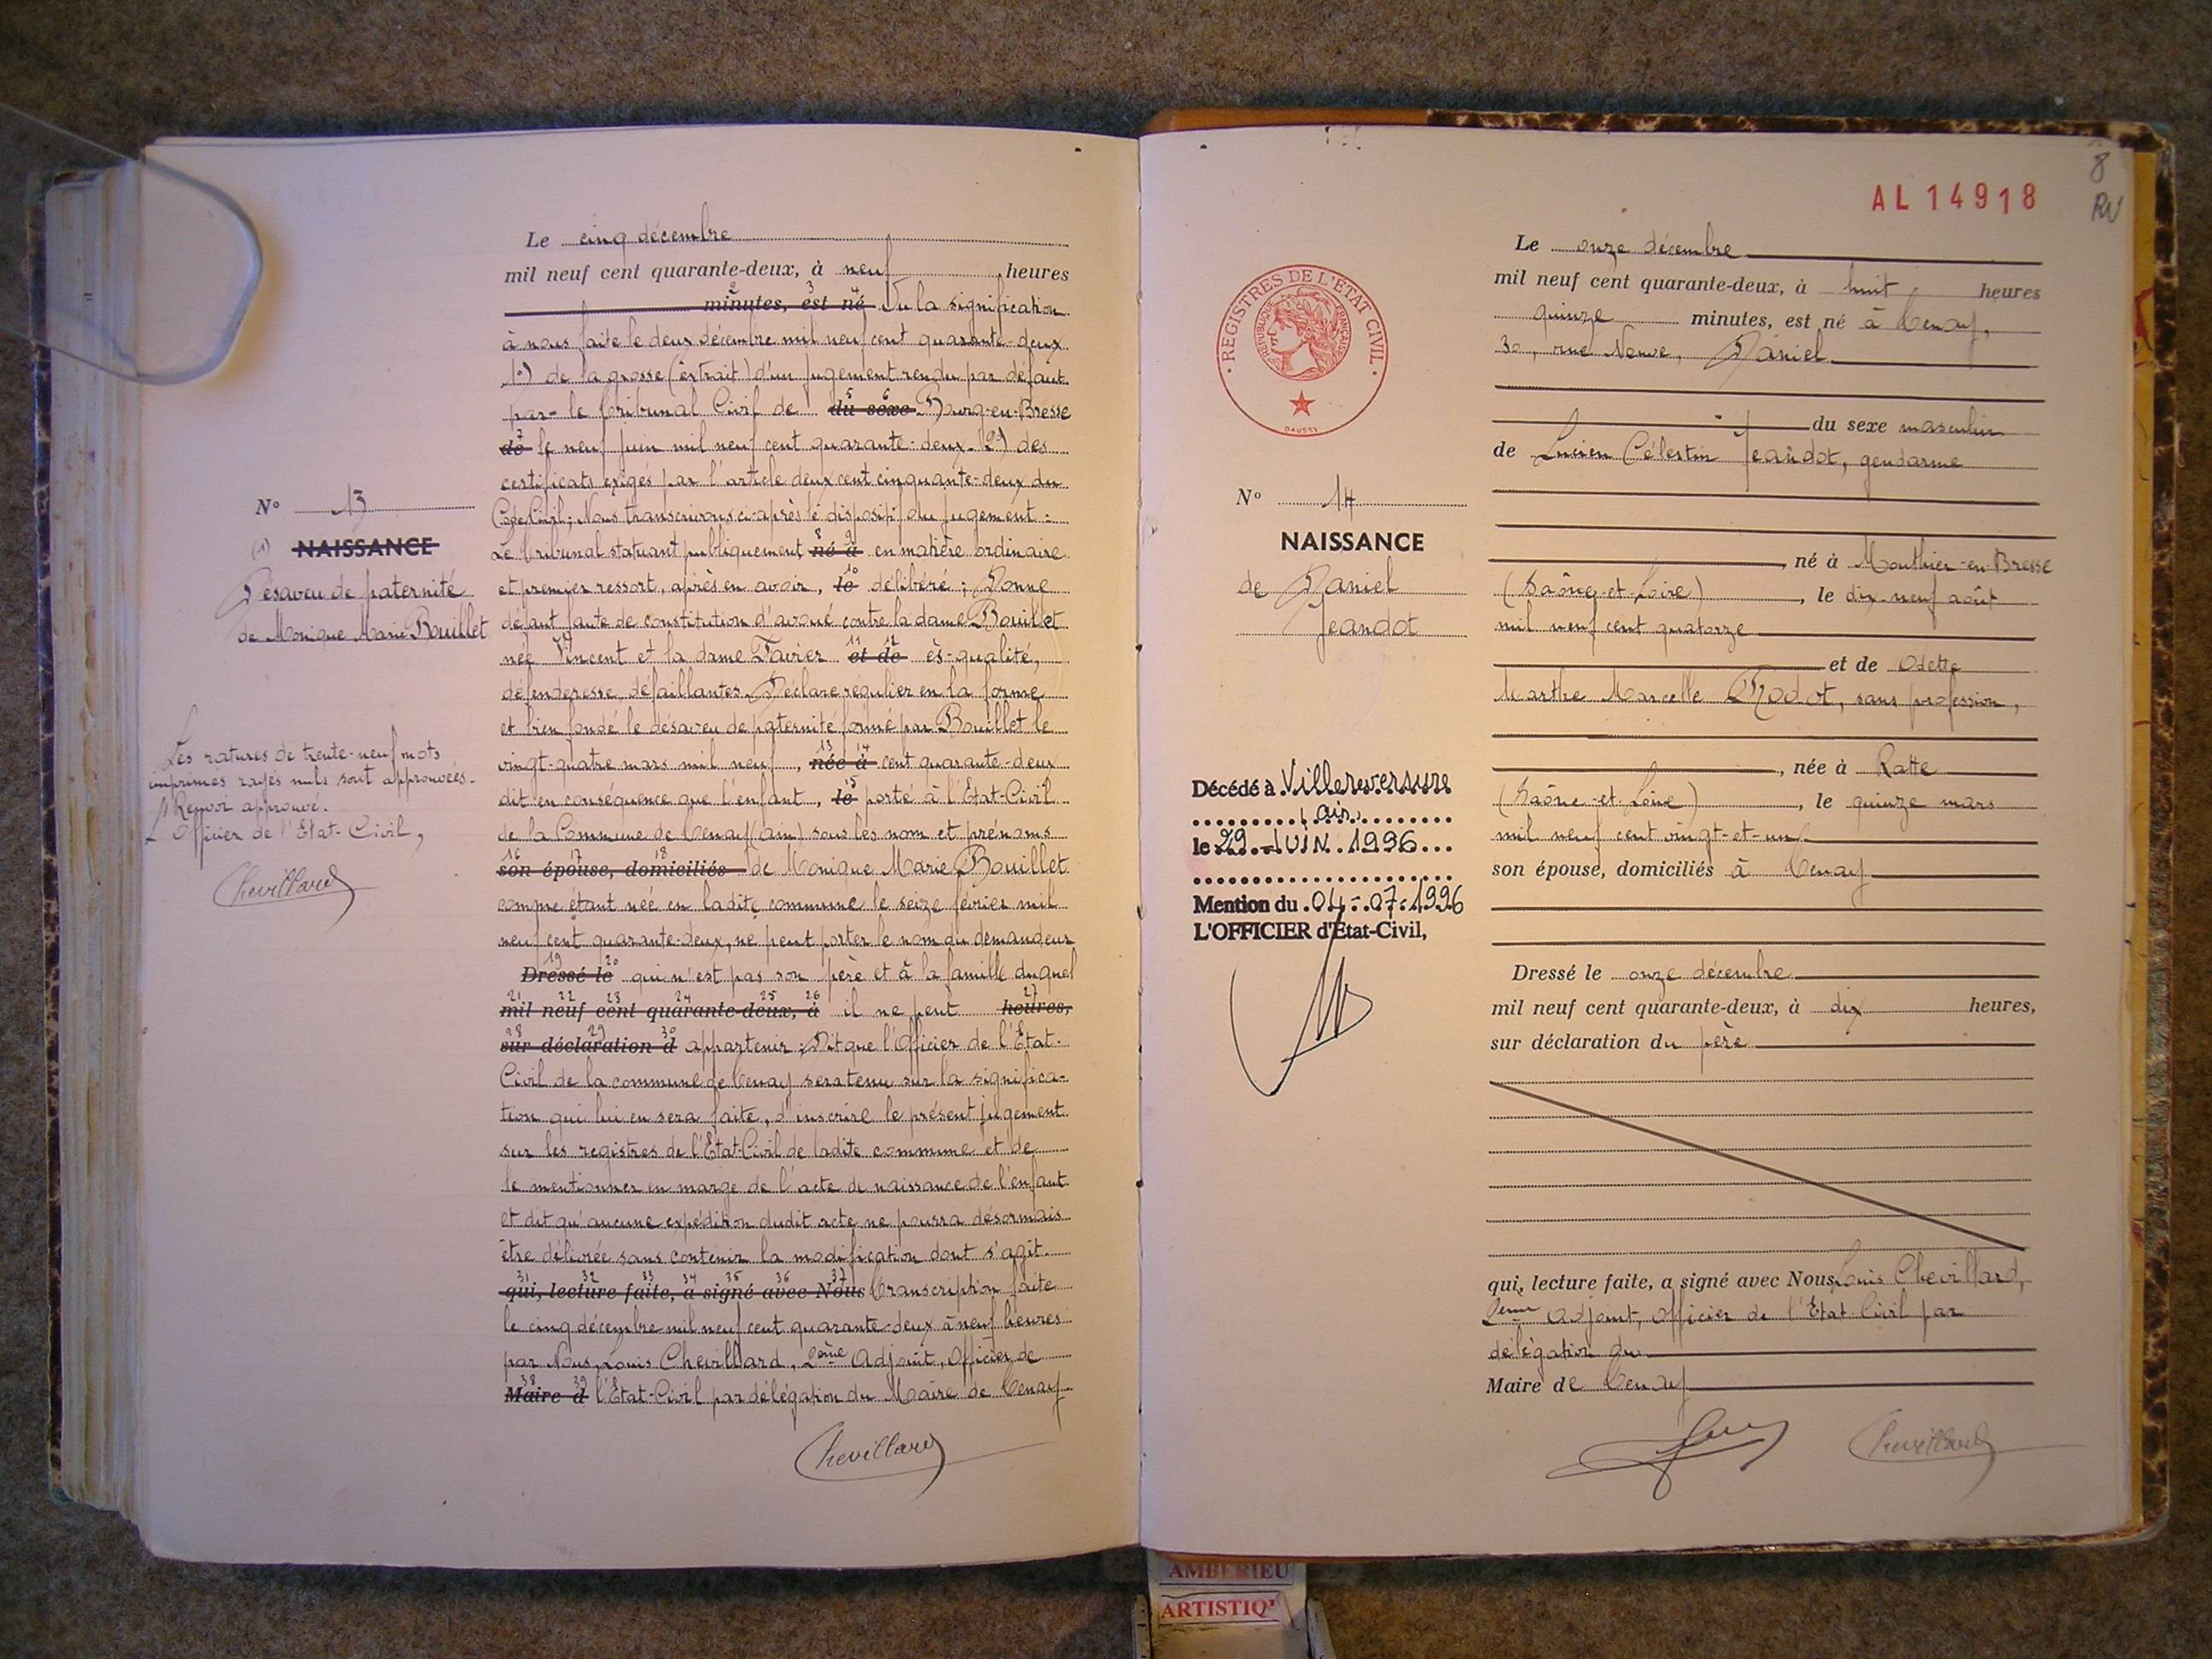 Le cinq décembre
mil neuf cent quarante-deux, à neuf heures
minutes, est né Vu la signification
à nous faite le deux décembre mil neuf cent quarante-deux
1°) de la grosse (extrait) d'un jugement rendu par défaut
par le Tribunal Civil de du sexe Bourg-en-Bresse
de le neuf juin mil neuf cent quarante-deux. 2°) des
certificats exigés par l'article deux cent cinquante-deux du
Code Civil; Nous transcrivons ci-après le dispositif du jugement:
Le Tribunal statuant publiquement né à en matière ordinaire
et premier ressort, après en avoir, le délibéré; Donne
défaut faute de constitution d'avoué contre la dame Bouillet
née Vincent et la dame Favier et de ès-qualité,
défenderesse, défaillantes. Déclare régulier en la forme
et bien fondé le désaveu de paternité formé par Bouillet le
vingt-quatre mars mil neuf, née à cent quarante-deux
dit en conséquence que l'enfant, le porté à l'Etat-Civil
de la Commune de Tenay (Ain) sous les nom et prénoms
son épouse, domiciliés de Monique Marie Bouillet
comme étant née en ladite commune le seize février mil
neuf cent quarante-deux, ne peut porter le nom du demandeur
Dressé le qui n'est pas son père et à la famille duquel
mil neuf cent quarante-deux, à il ne peut heures,
sur déclaration d appartenir; Dit que l'Officier de l'Etat-
Civil de la commune de Tenay sera tenu sur la significa-
tion qui lui en sera faite, d'inscrire le présent jugement
sur les registres de l'Etat-Civil de ladite commune et de
le mentionner en marge de l'acte de naissance de l'enfant
et dit qu'aucune expédition dudit acte ne pourra désormais
être délivrée sans contenir la modification dont s'agit.
qui, lecture faite, a signé avec Nous Transcription faite
le cinq décembre mil neuf cent quarante-deux à neuf heures
par Nous, Louis Chevillard, 2ème Adjoint, Officier de
Maire d l'Etat-Civil par délégation du Maire de Tenay
Chevillard
N° 13
(1) NAISSANCE
Désaveu de paternité
de Monique Marie Bouillet
Les ratures de trente-neuf mots
imprimés rayés nuls sont approuvées.
1 Renvoi approuvé.
L'Officier de l'Etat-Civil,
Chevillard
8
RV
AL 14918
REGISTRES DE L'ETAT CIVIL
REPUBLIQUE FRANÇAISE
N° 14
NAISSANCE
de Daniel
Jeandot
Décédé à Villereversure
(ain)
le 29 JUIN 1996
Mention du 04-07-1996
L'OFFICIER d'Etat-Civil,
Le onze décembre
mil neuf cent quarante-deux, à huit heures
quinze minutes, est né à Tenay,
30, rue Neuve, Daniel
du sexe masculin
de Lucien Célestin Jeandot, gendarme
né à Mouthier-en-Bresse
(Saône-et-Loire), le dix-neuf août
mil neuf cent quatorze
et de Odette
Marthe Marcelle Rodot, sans profession,
née à Ratte
(Saône-et-Loire), le quinze mars
mil neuf cent vingt-et-un
son épouse, domiciliés à Tenay
Dressé le onze décembre
mil neuf cent quarante-deux, à dix heures,
sur déclaration du père
qui, lecture faite, a signé avec Nous, Louis Chevillard,
2ème Adjoint, Officier de l'Etat-Civil par
délégation du
Maire de Tenay
Chevillard
AMBERIEU
ARTISTIQ